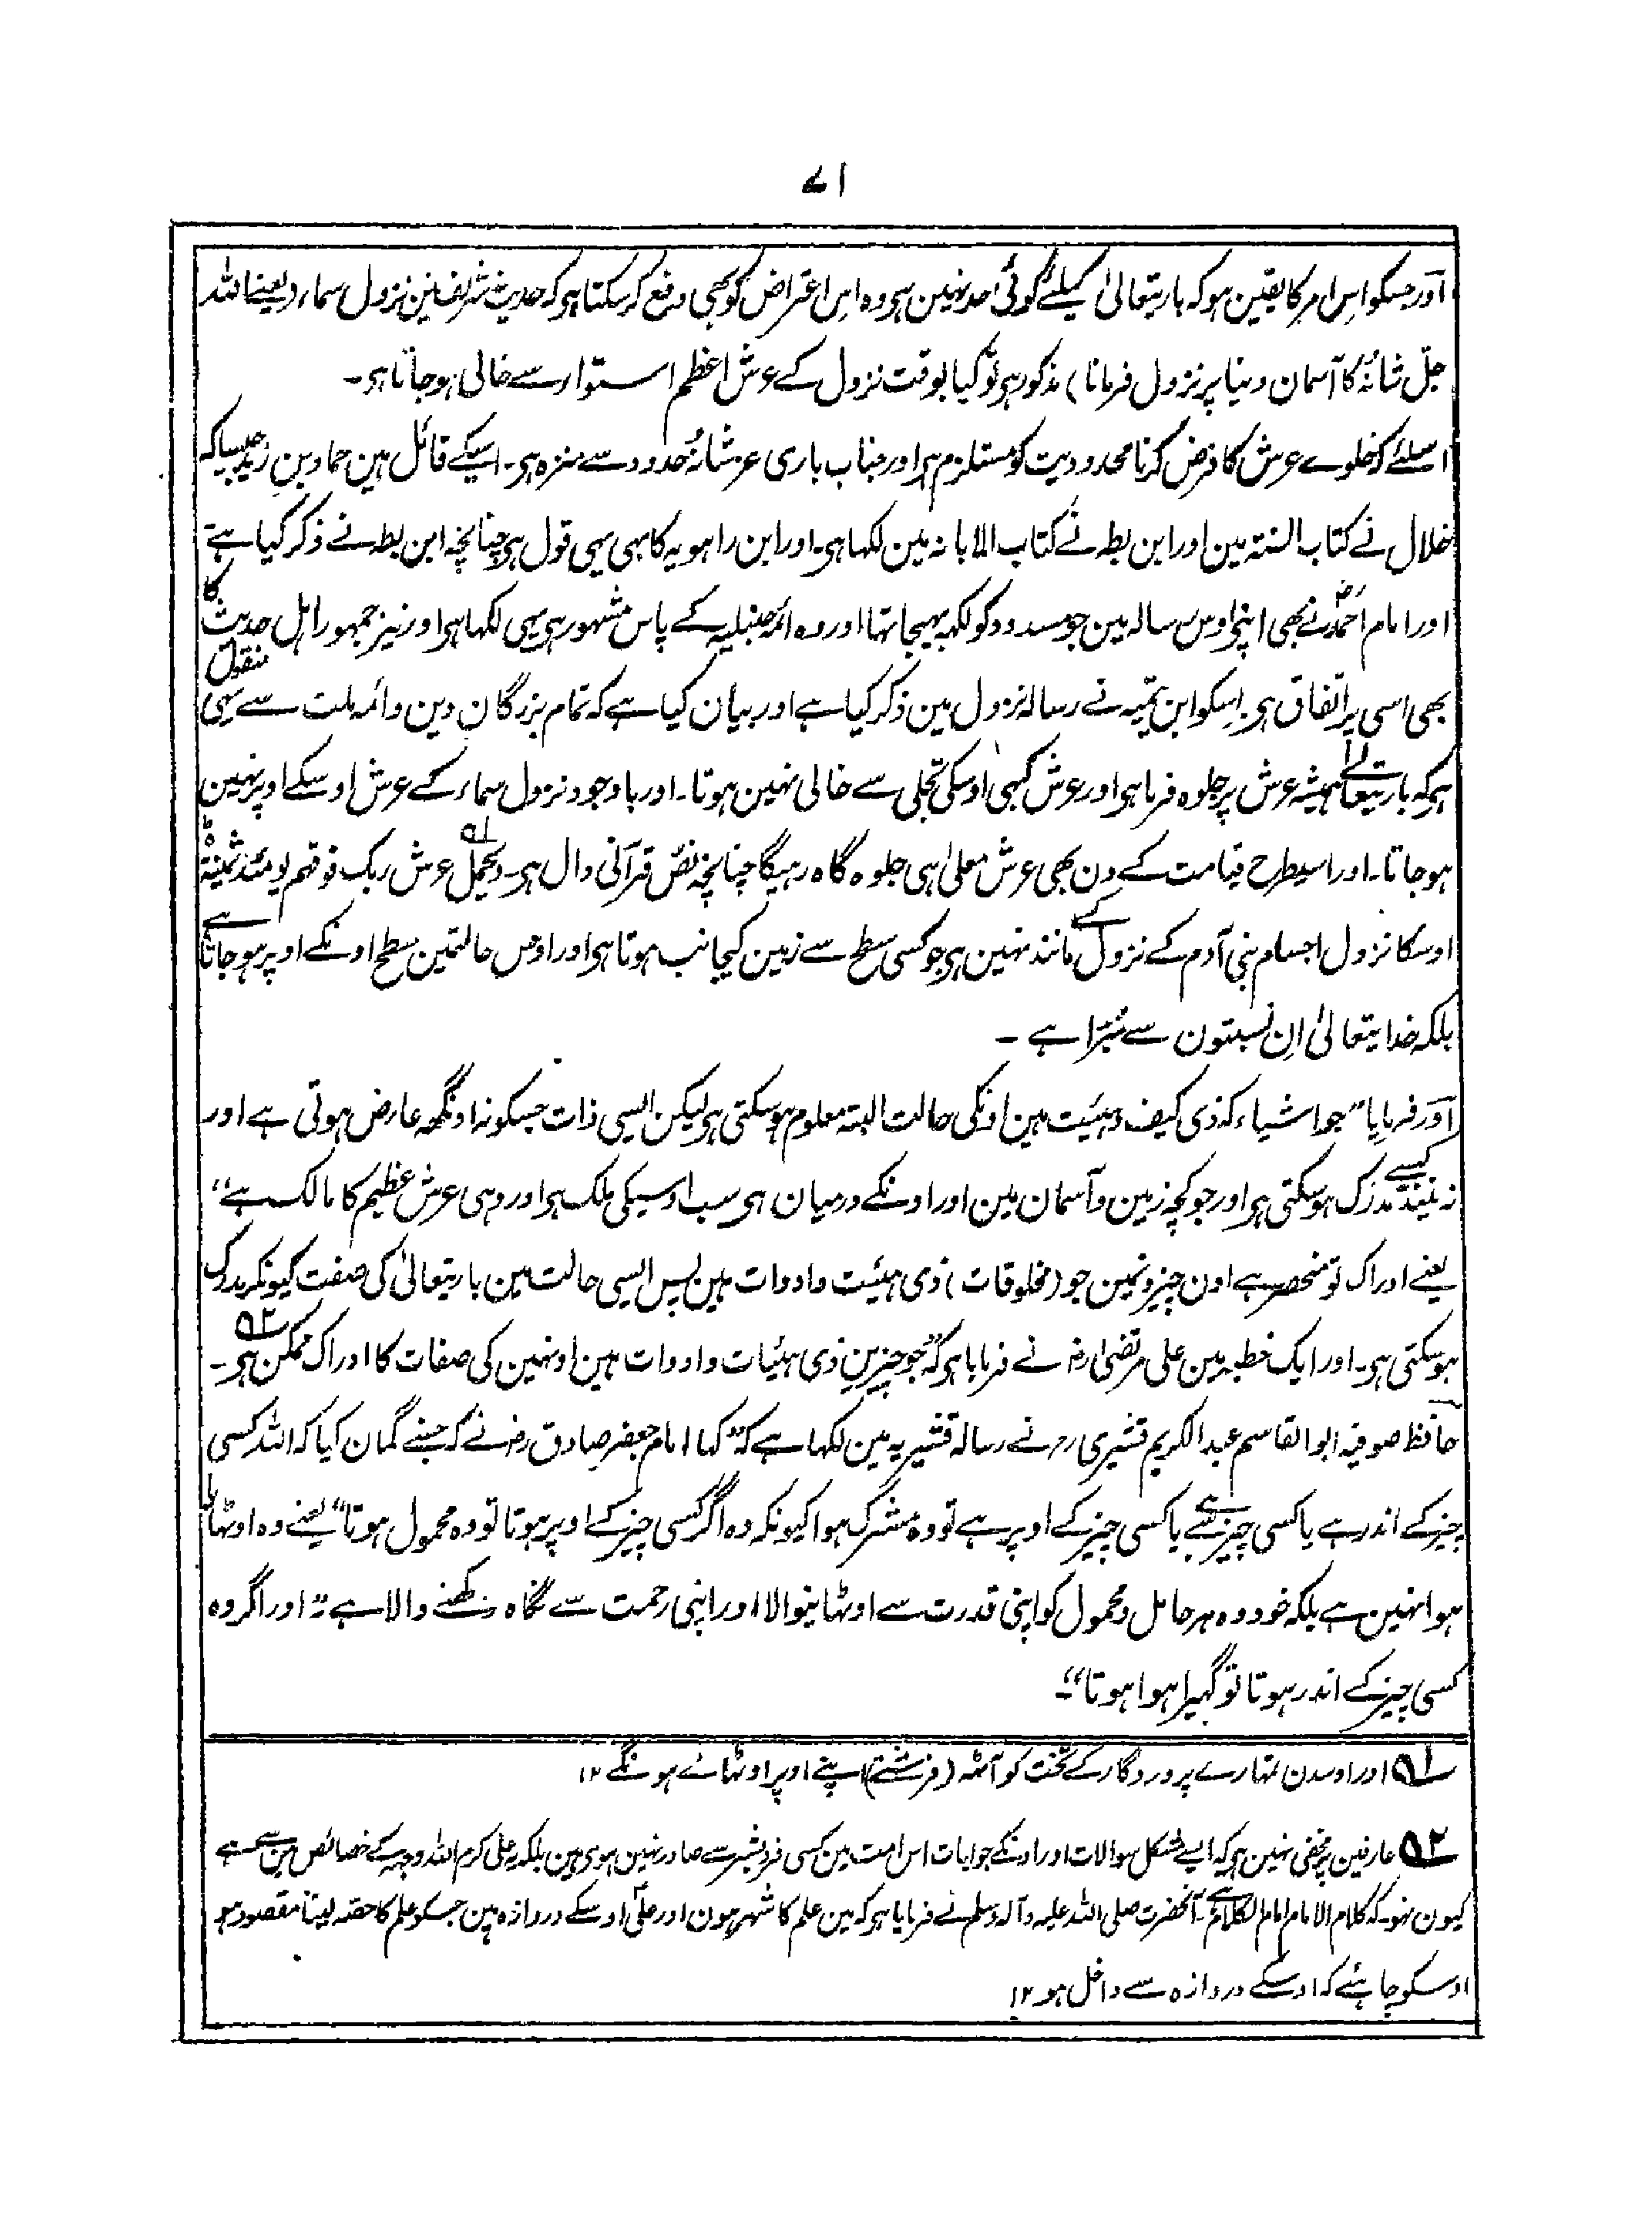 ۷۱
آور جسکو اس امر کا یقین ہو کہ باریتعالیٰ کیلئے کوئی حد نہین ہے وہ اس اعتراض کو بھی دفع کر سکتا ہو کہ حدیث شریف مین نزول سماء (یعنے اللہ
جلّ شانہٗ کا آسمان دنیا پر نزول فرمانا) مذکور ہے تو کیا بوقت نزول کے عرش اعظم استوار سے خالی ہو جاتا ہی۔
اسلئے کہ خلوے عرش کا فرض کرنا محدودیت کو مستلزم ہے اور جناب باری عز شانہٗ حدود سے منزہ ہی۔ اسیکے قائل ہین حماد بن زید جیسا کہ
خلال نے کتاب السنتہ مین اور ابن بطہ نے کتاب الابانہ مین لکھا ہی۔ اور ابن راہویہ کا بہی یہی قول ہی چنانچہ ابن بطہ نے ذکر کیا ہے
اور امام احمدؒ نے بھی اپنے اوس رسالہ مین جو مسدد کو لکہہ بہیجا تہا اور وہ ائمہ حنبلیہ کے پاس مشہور ہی یہی لکھا ہو اور نیز جمہور اہل حدیث کا
بھی اسی پر اتفاق ہی۔ اسکو ابن تیمیہ نے رسالہ نزول مین ذکر کیا ہے اور بیان کیا ہے کہ تمام بزرگان دین و ائمہ ملت سے یہی منقول
ہی کہ باریتعالےٰ ہمیشہ عرش پر جلوہ فرما ہو اور عرش کبہی اوسکی تجلی سے خالی نہین ہوتا۔ اور باوجود نزول سماء کے عرش اوسکے اوپر نہین
ہو جاتا۔ اور اسیطرح قیامت کے دن بھی عرش معلیٰ ہی جلوہ گاہ رہیگا چنانچہ نص قرآنی دال ہی۔ ویحمل عرش ربک فوقہم یومئذ ثمنیۃ ۵۱
اوسکا نزول اجسام بنی آدم کے نزول کے مانند نہین ہی جو کسی سطح سے زمین کیجانب ہوتا ہو اور اوس حالتمین سطح اونکے اوپر ہو جاتا ہے
بلکہ خدایتعالیٰ ان نسبتون سے مُبرّا ہے ۔
آور فرمایا ”جو اشیاء کہ ذی کیف و ہئیت ہین اونکی حالت البتہ معلوم ہوسکتی ہی لیکن ایسی ذات جسکو نہ اونگھہ عارض ہوتی ہے اور
نہ نیند کیسے مدرک ہوسکتی ہو اور جو کچہ زمین و آسمان مین اور اونکے درمیان ہی سب اوسیکی ملک ہو اور وہی عرش عظیم کا مالک ہے“
یعنے ادراک تو منحصر ہے اون چیزونمین جو (مخلوقات) ذی ہیئت و ادوات ہین پس ایسی حالت مین باریتعالیٰ کی صفت کیونکر مدرک
ہوسکتی ہی۔ اور ایک خطبہ مین علی مرتضیٰ رضہ نے فرمایا ہو کہ ”جو چیزین ذی ہئیات و ادوات ہین اونہین کی صفات کا ادراک ممکن ہی۔ ۵۲
حافظ صوفیہ ابو القاسم عبد الکریم قشیری رہ نے رسالہ قشیریہ مین لکھا ہے کہ ”کہا امام جعفر صادق رضہ نے کہ جسنے گمان کیا کہ اللہ کسی
چیز کے اندر ہے یا کسی چیز سے ہے یا کسی چیز کے اوپر ہے تو وہ مشرک ہوا کیونکہ وہ اگر کسی چیز کے اوپر ہوتا تو وہ محمول ہوتا“ یعنے وہ اوٹھایا
ہوا نہین ہے بلکہ خود وہ ہر حامل و محمول کو اپنی قدرت سے اوٹھانیوالا اور اپنی رحمت سے نگاہ رکھنے والا ہے ”اور اگر وہ
کسی چیز کے اندر ہوتا تو گہیرا ہوا ہوتا“۔
۵۱ اور اوسدن تمہارے پروردگار کے تخت کو آٹھہ (فرشتے) اپنے اوپر اوٹھائے ہونگے ۱۲
۵۲ عارفین پر مخفی نہین ہی کہ ایسے مشکل سوالات اور اونکے جوابات اس امت مین کسی فرد بشر سے صادر نہین ہوی ہین بلکہ یہ علی کرم اللہ وجہہ کے خصائص مین سے ہے
کیون نہو۔ کہ کلام الامام امام الکلام ہے۔ آنحضرت صلی اللہ علیہ و آلہ وسلم نے فرمایا ہو کہ مین علم کا شہر ہون اور علیؓ اوسکے دروازہ ہین جسکو علم کا حصہ لینا مقصود ہو
اوسکو چاہئے کہ اوسکے دروازہ سے داخل ہو ۱۲